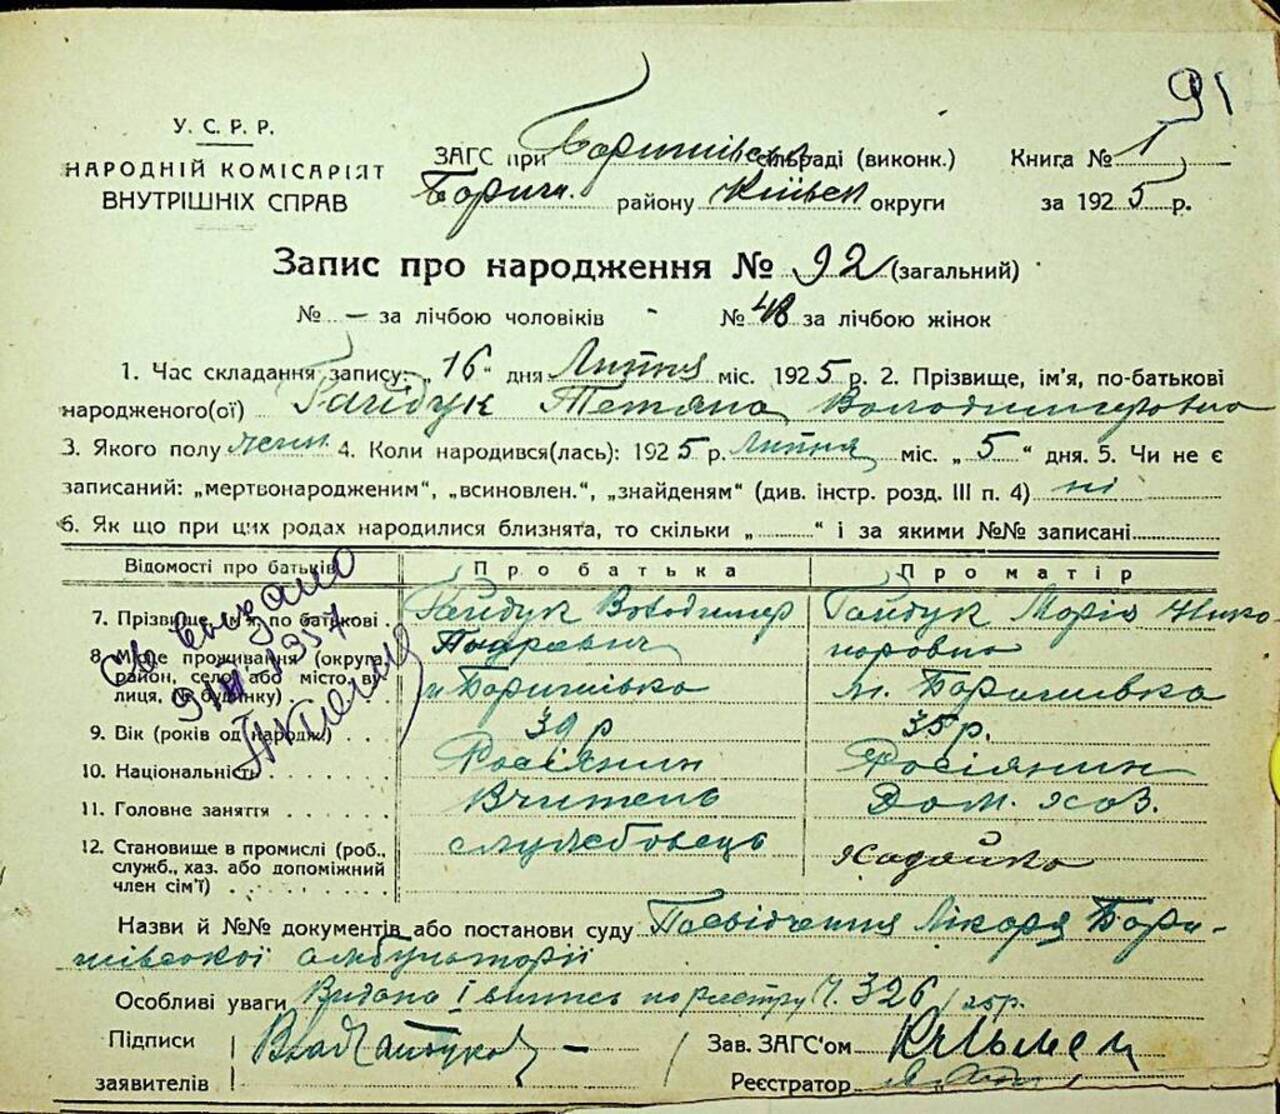 91
У. С. Р. Р.
НАРОДНІЙ КОМІСАРІЯТ
ВНУТРІШНІХ СПРАВ
ЗАГС при Боришівськ сільраді (виконк.)
Бориш. району Київськ округи
Книга № 1
за 1925 р.
Запис про народження № 92 (загальний)
№ — за лічбою чоловіків № 48 за лічбою жінок
1. Час складання запису: „16“ дня Лютня міс. 1925 р. 2. Прізвище, ім'я, по-батькові
народженого(ої) Гайдук Тетяна Володимировна
3. Якого полу жін. 4. Коли народився(лась): 1925 р. Лютня міс. „5“ дня. 5. Чи не є
записаний: „мертвонародженим“, „всиновлен.“, „знайденям“ (див. інстр. розд. III п. 4) ні
6. Як що при цих родах народилися близнята, то скільки „ “ і за якими №№ записані
Відомості про батьків Про батька Про матір
7. Прізвище, ім'я, по батькові Гайдук Володимер Гайдук Марія Нико-
норовна
8. Місце проживання (округа, район, село або місто, вулиця, № будинку) м Боришівка м. Боришевка
9. Вік (років од народж.) 39 р 35 р.
10. Національність Росіянин Росіянин
11. Головне заняття Вчитель Дом. хоз.
12. Становище в промислі (роб., служб., хаз. або допоміжний член сім'ї) служебовець Хазяйка
Св. выдано
1957
Назви й №№ документів або постанови суду Посвідчення Лікаря Бори-
шівської амбуляторії
Особливі уваги Видана І випись по реєстру Ч. 326/25р.
Підписи
заявителів
Зав. ЗАГС'ом
Реєстратор